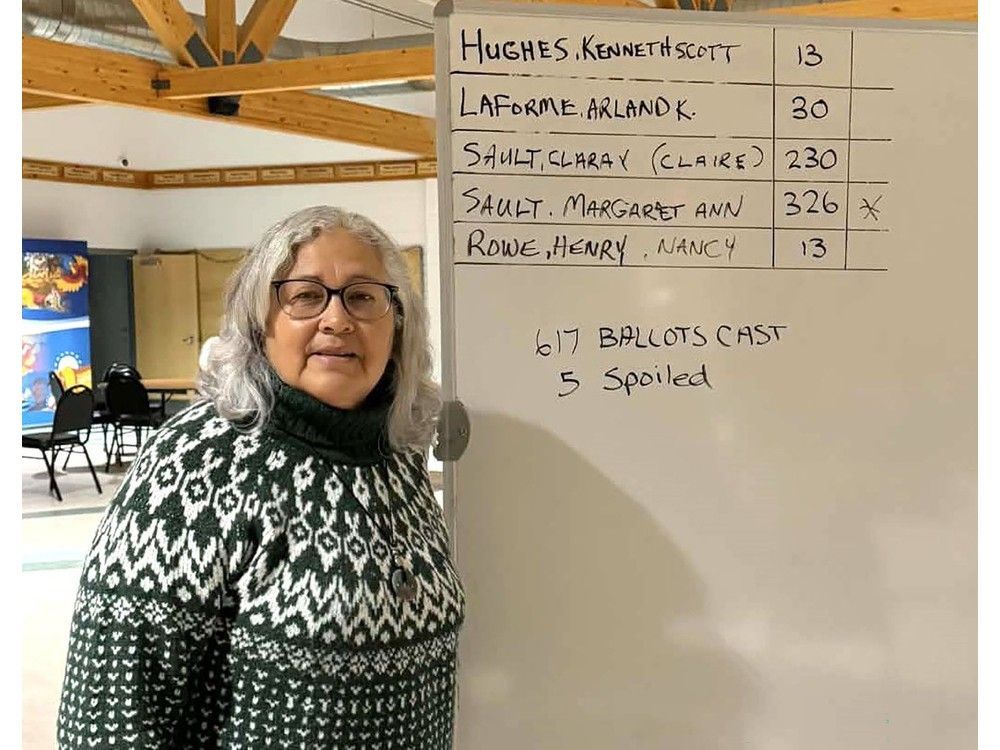 HUGHES, KENNETH SCOTT 13
LAFORME, ARLAND K. 30
SAULT, CLARA Y (CLAIRE) 230
SAULT. MARGARET ANN 326 *
ROWE, HENRY, NANCY 13
617 BALLOTS CAST
5 Spoiled